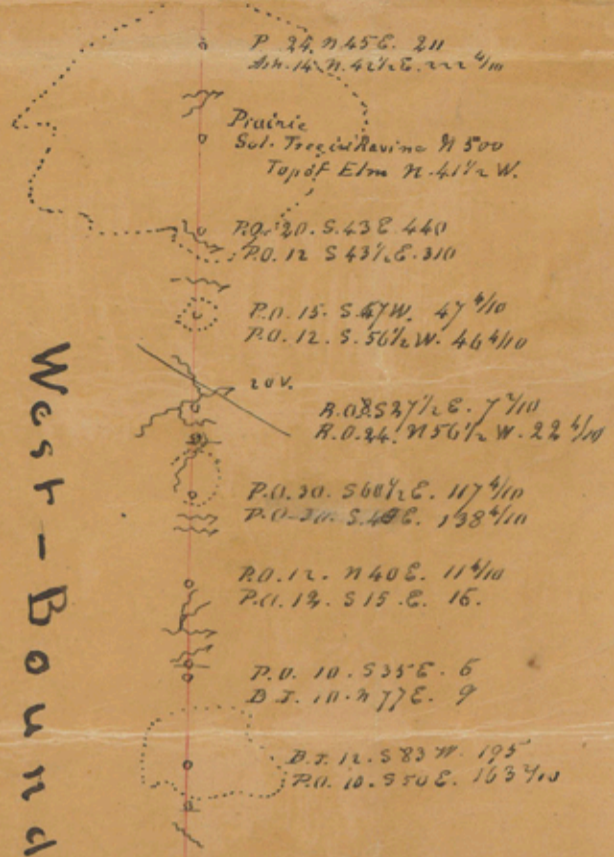 P. 24. N 45 E. 211
Ash. 14. N. 42 1/2 E. 222 4/10
Prairie
Sol. Tree in Ravine N 500
Top of Elm N. 41 1/2 W.
P.O. 20. S. 43 E. 440
P.O. 12 S 43 1/2 E. 310
P.O. 15. S. 47 W. 47 4/10
P.O. 12. S. 56 1/2 W. 46 4/10
20 V.
R.O. 8 S 27 1/2 E. 7 2/10
R.O. 24. N 56 1/2 W. 22 4/10
P.O. 30. S 60 1/2 E. 117 4/10
P.O. 20. S. E. 138 4/10
P.O. 12. N 40 E. 11 4/10
P.O. 12. S 15 E. 16.
P.O. 10. S 35 E. 6
B J. 10. N 77 E. 9
B.J. 12. S 83 W. 195
P.O. 10. S 50 E. 163 4/10
West - Bound